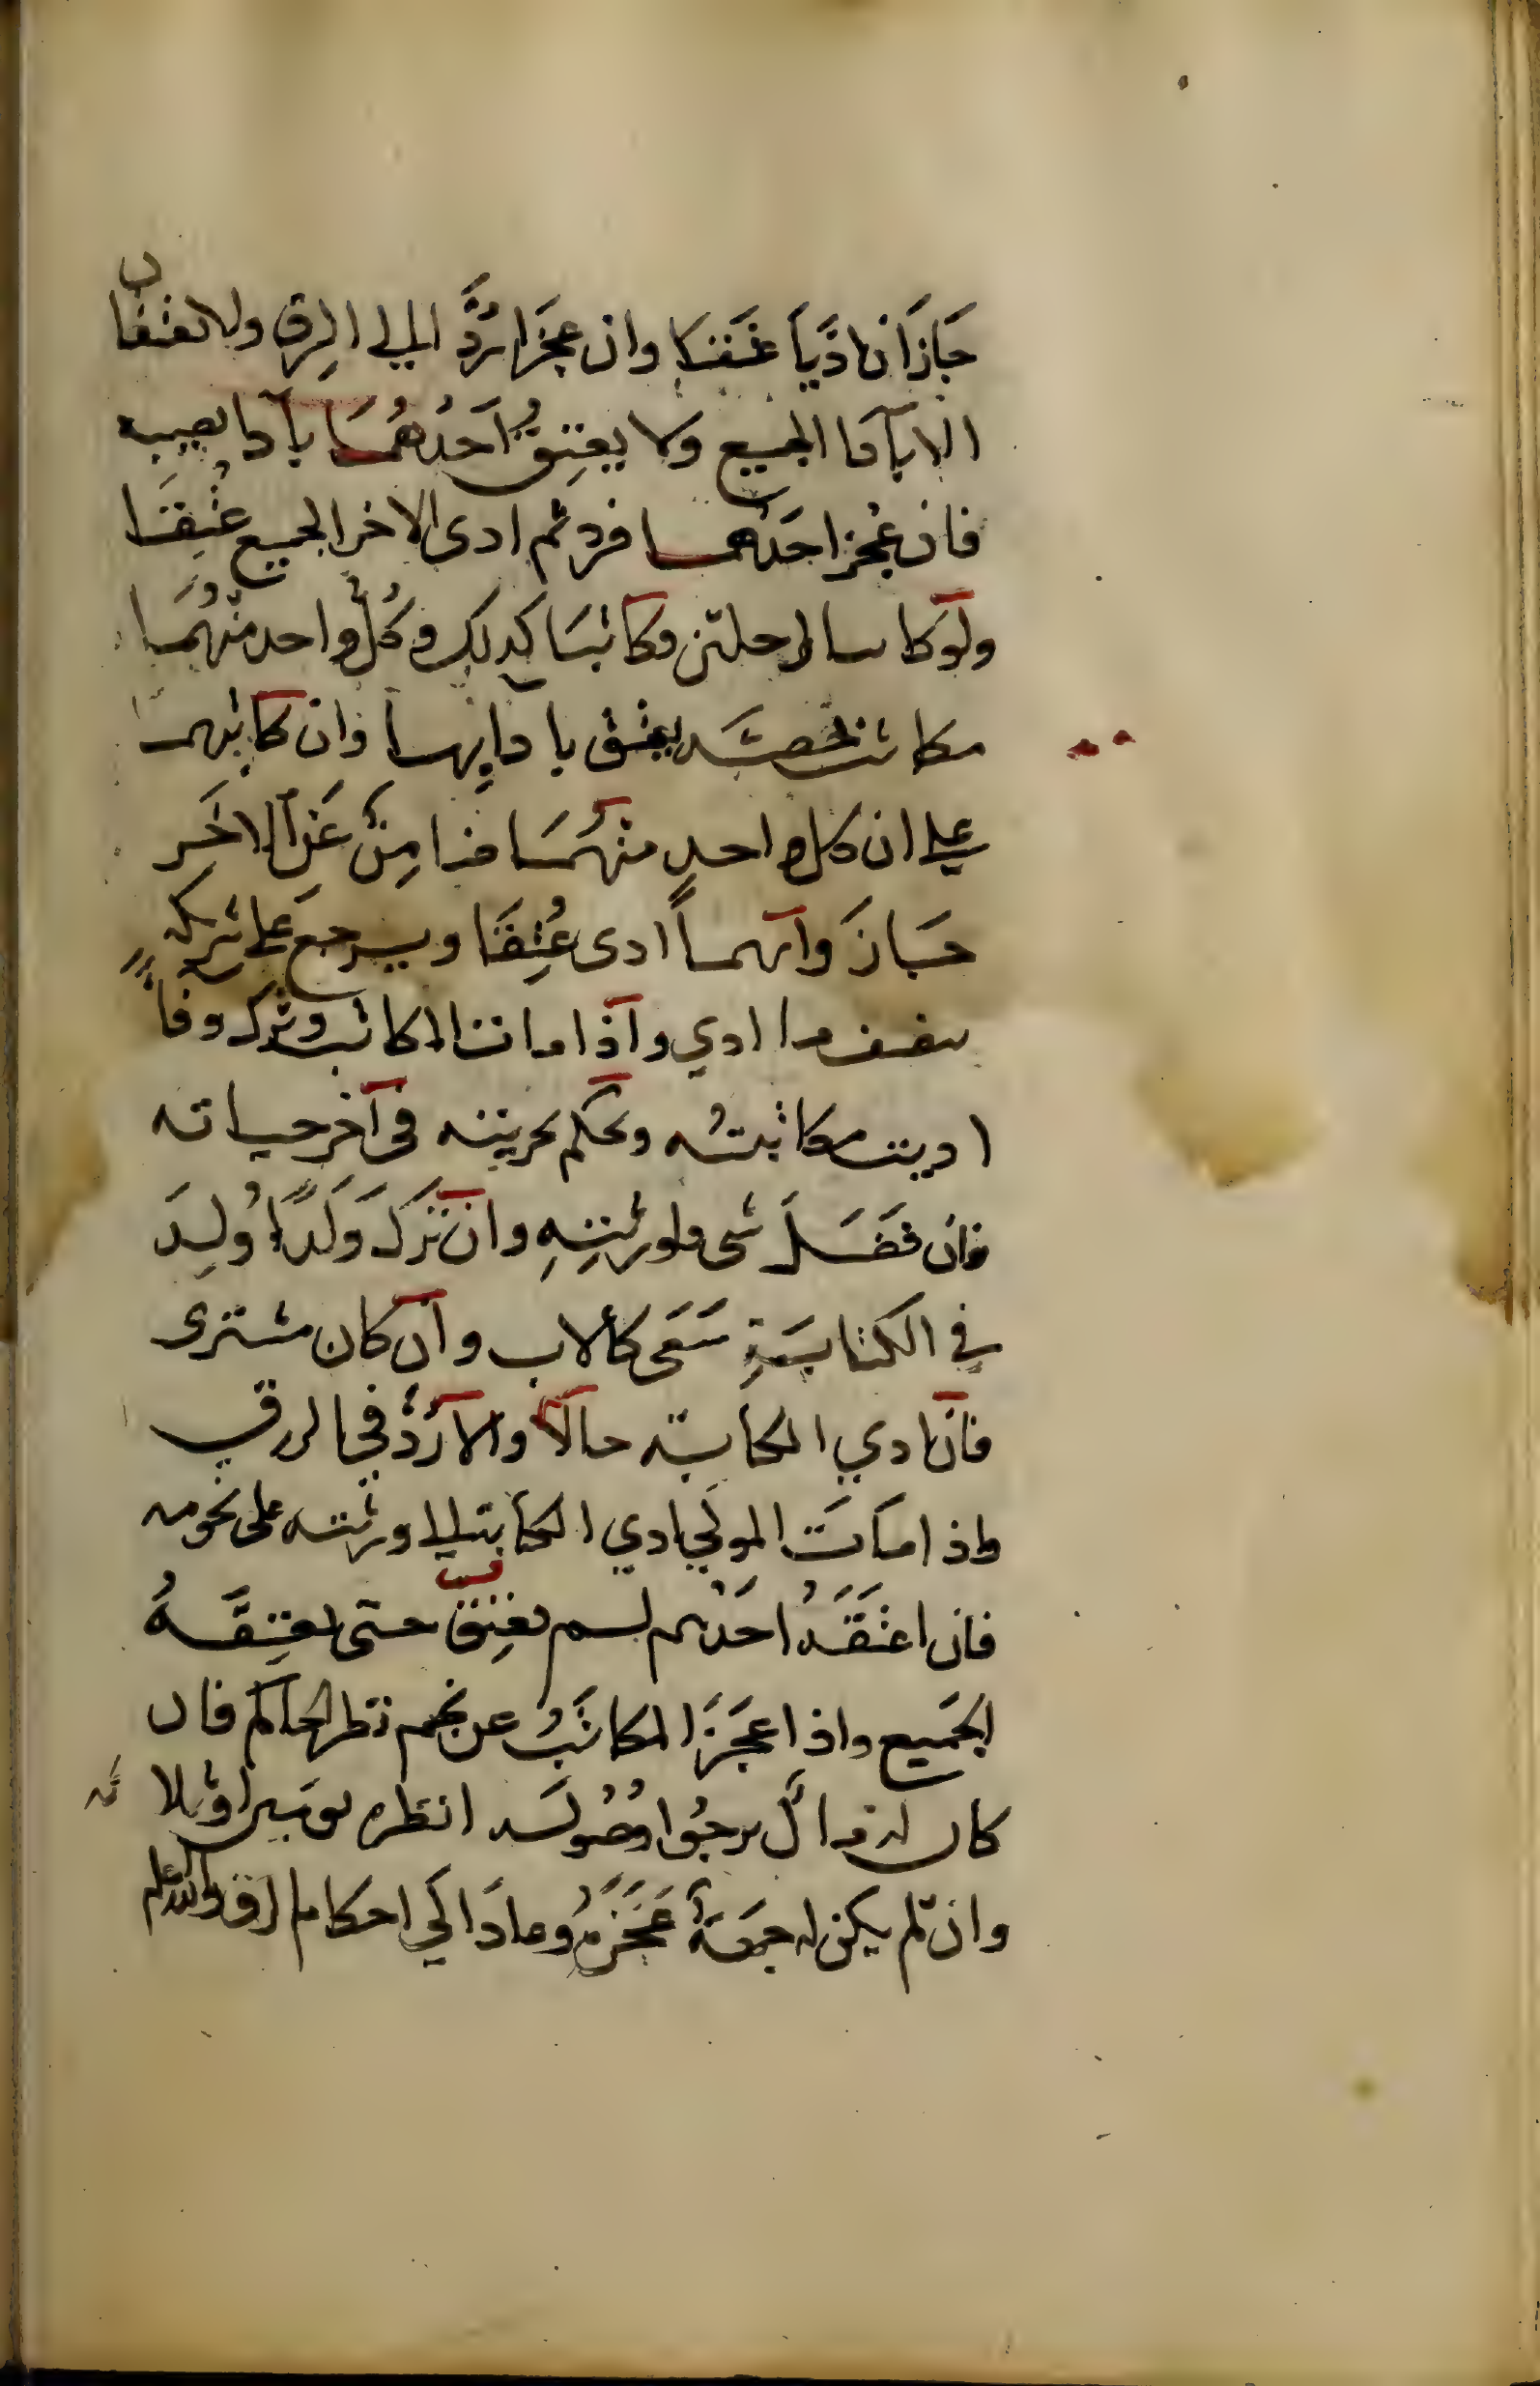 جَازَ فان ادَّيَا عَتَقا وان عجَزا رُدَّا الي الرِق ولا يعتقان
الا بآدا الجميع ولا يعتِقُ اَحَدُهُمَا بآدا نصيبه
فان عجز احَدُهمــا فرد ثم ادى الاخر الجميع عُتِقَـا
ولَو كانا لرجلين فكاتبَا كذلك فكُلُّ واحد منهُمَا
مكاتب بحصتـه يعتق بادايهـا وَان كاتبهمـا
علي ان كل واحدٍ منهُمَا ضامِنٌ عَنِ الاخَـرِ
جَـازَ وايهمـا ادى عُتِقَا ويـرجع على شريكه
بنصف ما ادي واذا مات المكاتب وترك وفاءً
اديت مكاتبتُـه وحكم بحريته فى آخر حيـاته
فان فَضَـلَ شى فلورثتِـهِ وان تَرَكَ وَلَدًا وُلِـدَ
في الكتابَـةِ سَعَى كالاب وان كان مشترى
فان ادي الكتابة حالًا والا رُدَّ في الرق
واذا مَـاتَ المولى ادي الكتابة الي ورثته على نجومه
فان اعتَقَـهُ احَدُهم لـم يعتِق حتى يعتِقَـهُ
الجَميع واذا عجَزَ المكاتَبُ عن نجم نظر الحاكم فان
كان له مال يرجُوا وصُولـه انظره يومين او ثلاثه
وان لم يكن له جهَـةٌ عَجَّزَهُ وعادَ الي احكام الرق والله اعلم